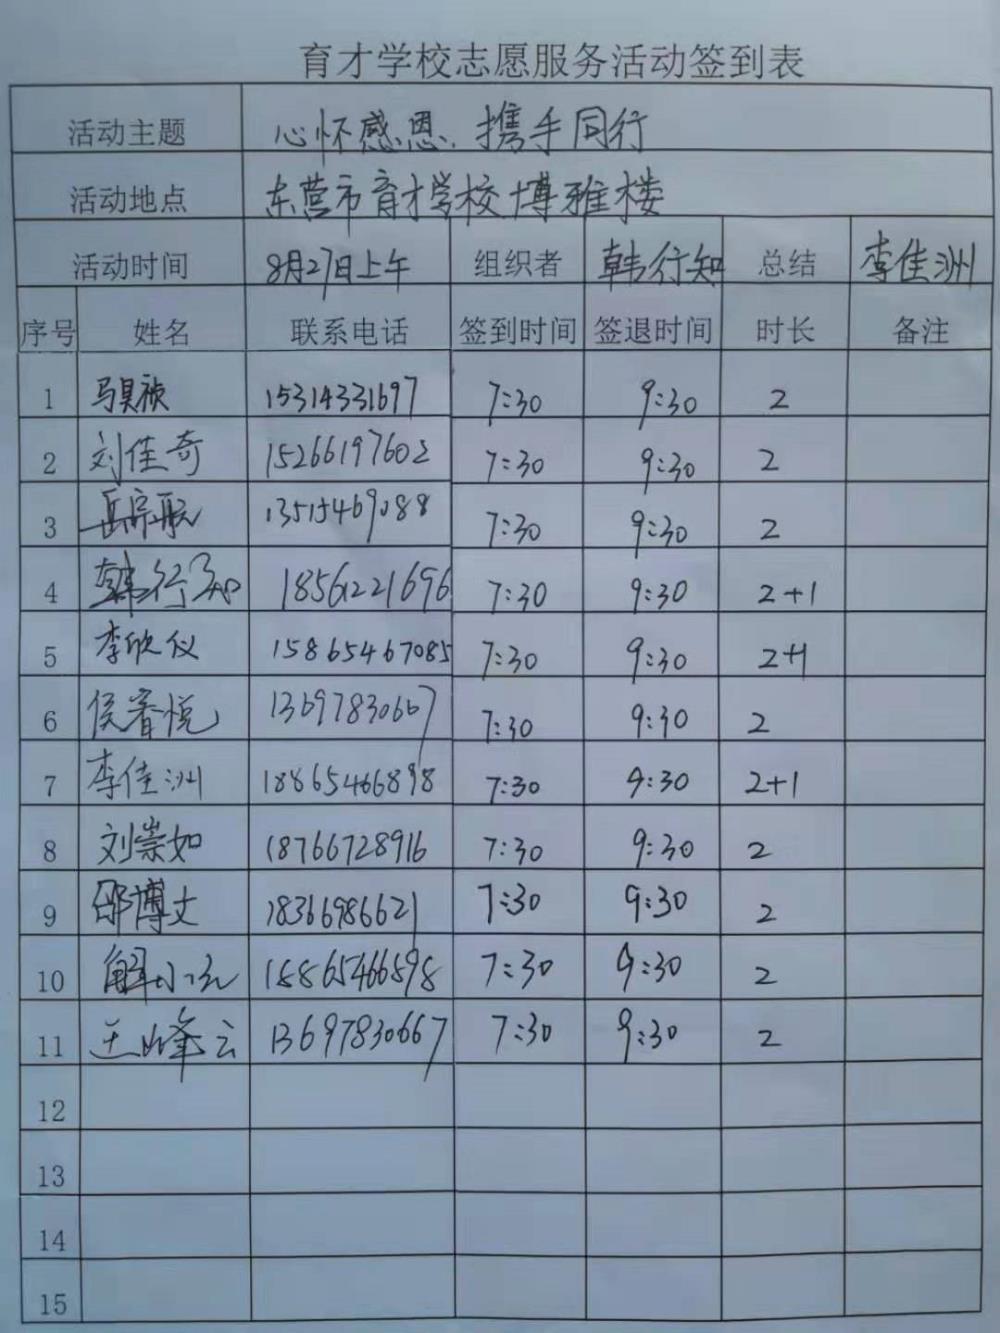 育才学校志愿服务活动签到表
活动主题 心怀感恩、携手同行
活动地点 东营市育才学校博雅楼
活动时间 8月27日上午 组织者 韩行知 总结 李佳洲
序号 姓名 联系电话 签到时间 签退时间 时长 备注
1 马昊祯 15314331697 7:30 9:30 2
2 刘佳奇 15266197602 7:30 9:30 2
3 岳宗航 13515469088 7:30 9:30 2
4 韩行知 18561221696 7:30 9:30 2+1
5 李欣仪 15865467085 7:30 9:30 2+1
6 侯睿悦 13697830667 7:30 9:30 2
7 李佳洲 18865466898 7:30 9:30 2+1
8 刘崇如 18766728916 7:30 9:30 2
9 邵博文 18366986621 7:30 9:30 2
10 解 7:30 9:30 2
11 王峰云 13697830667 7:30 9:30 2
12
13
14
15